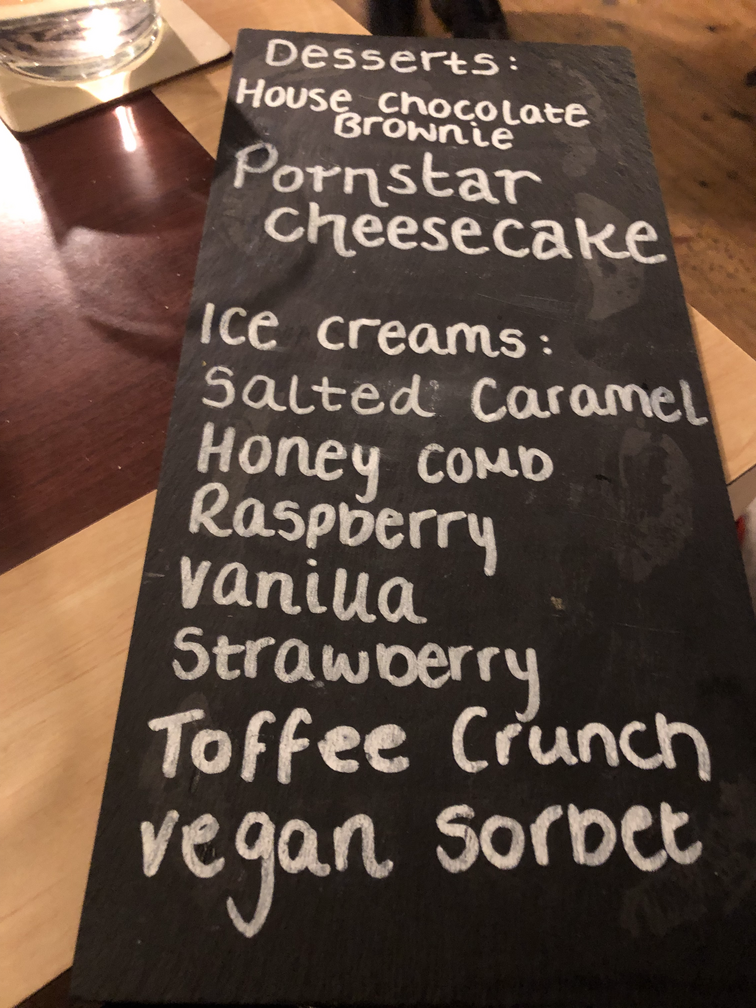 Desserts:
House chocolate
Brownie
Pornstar
cheesecake
Ice creams:
Salted Caramel
Honey comb
Raspberry
Vanilla
Strawberry
Toffee Crunch
vegan sorbet